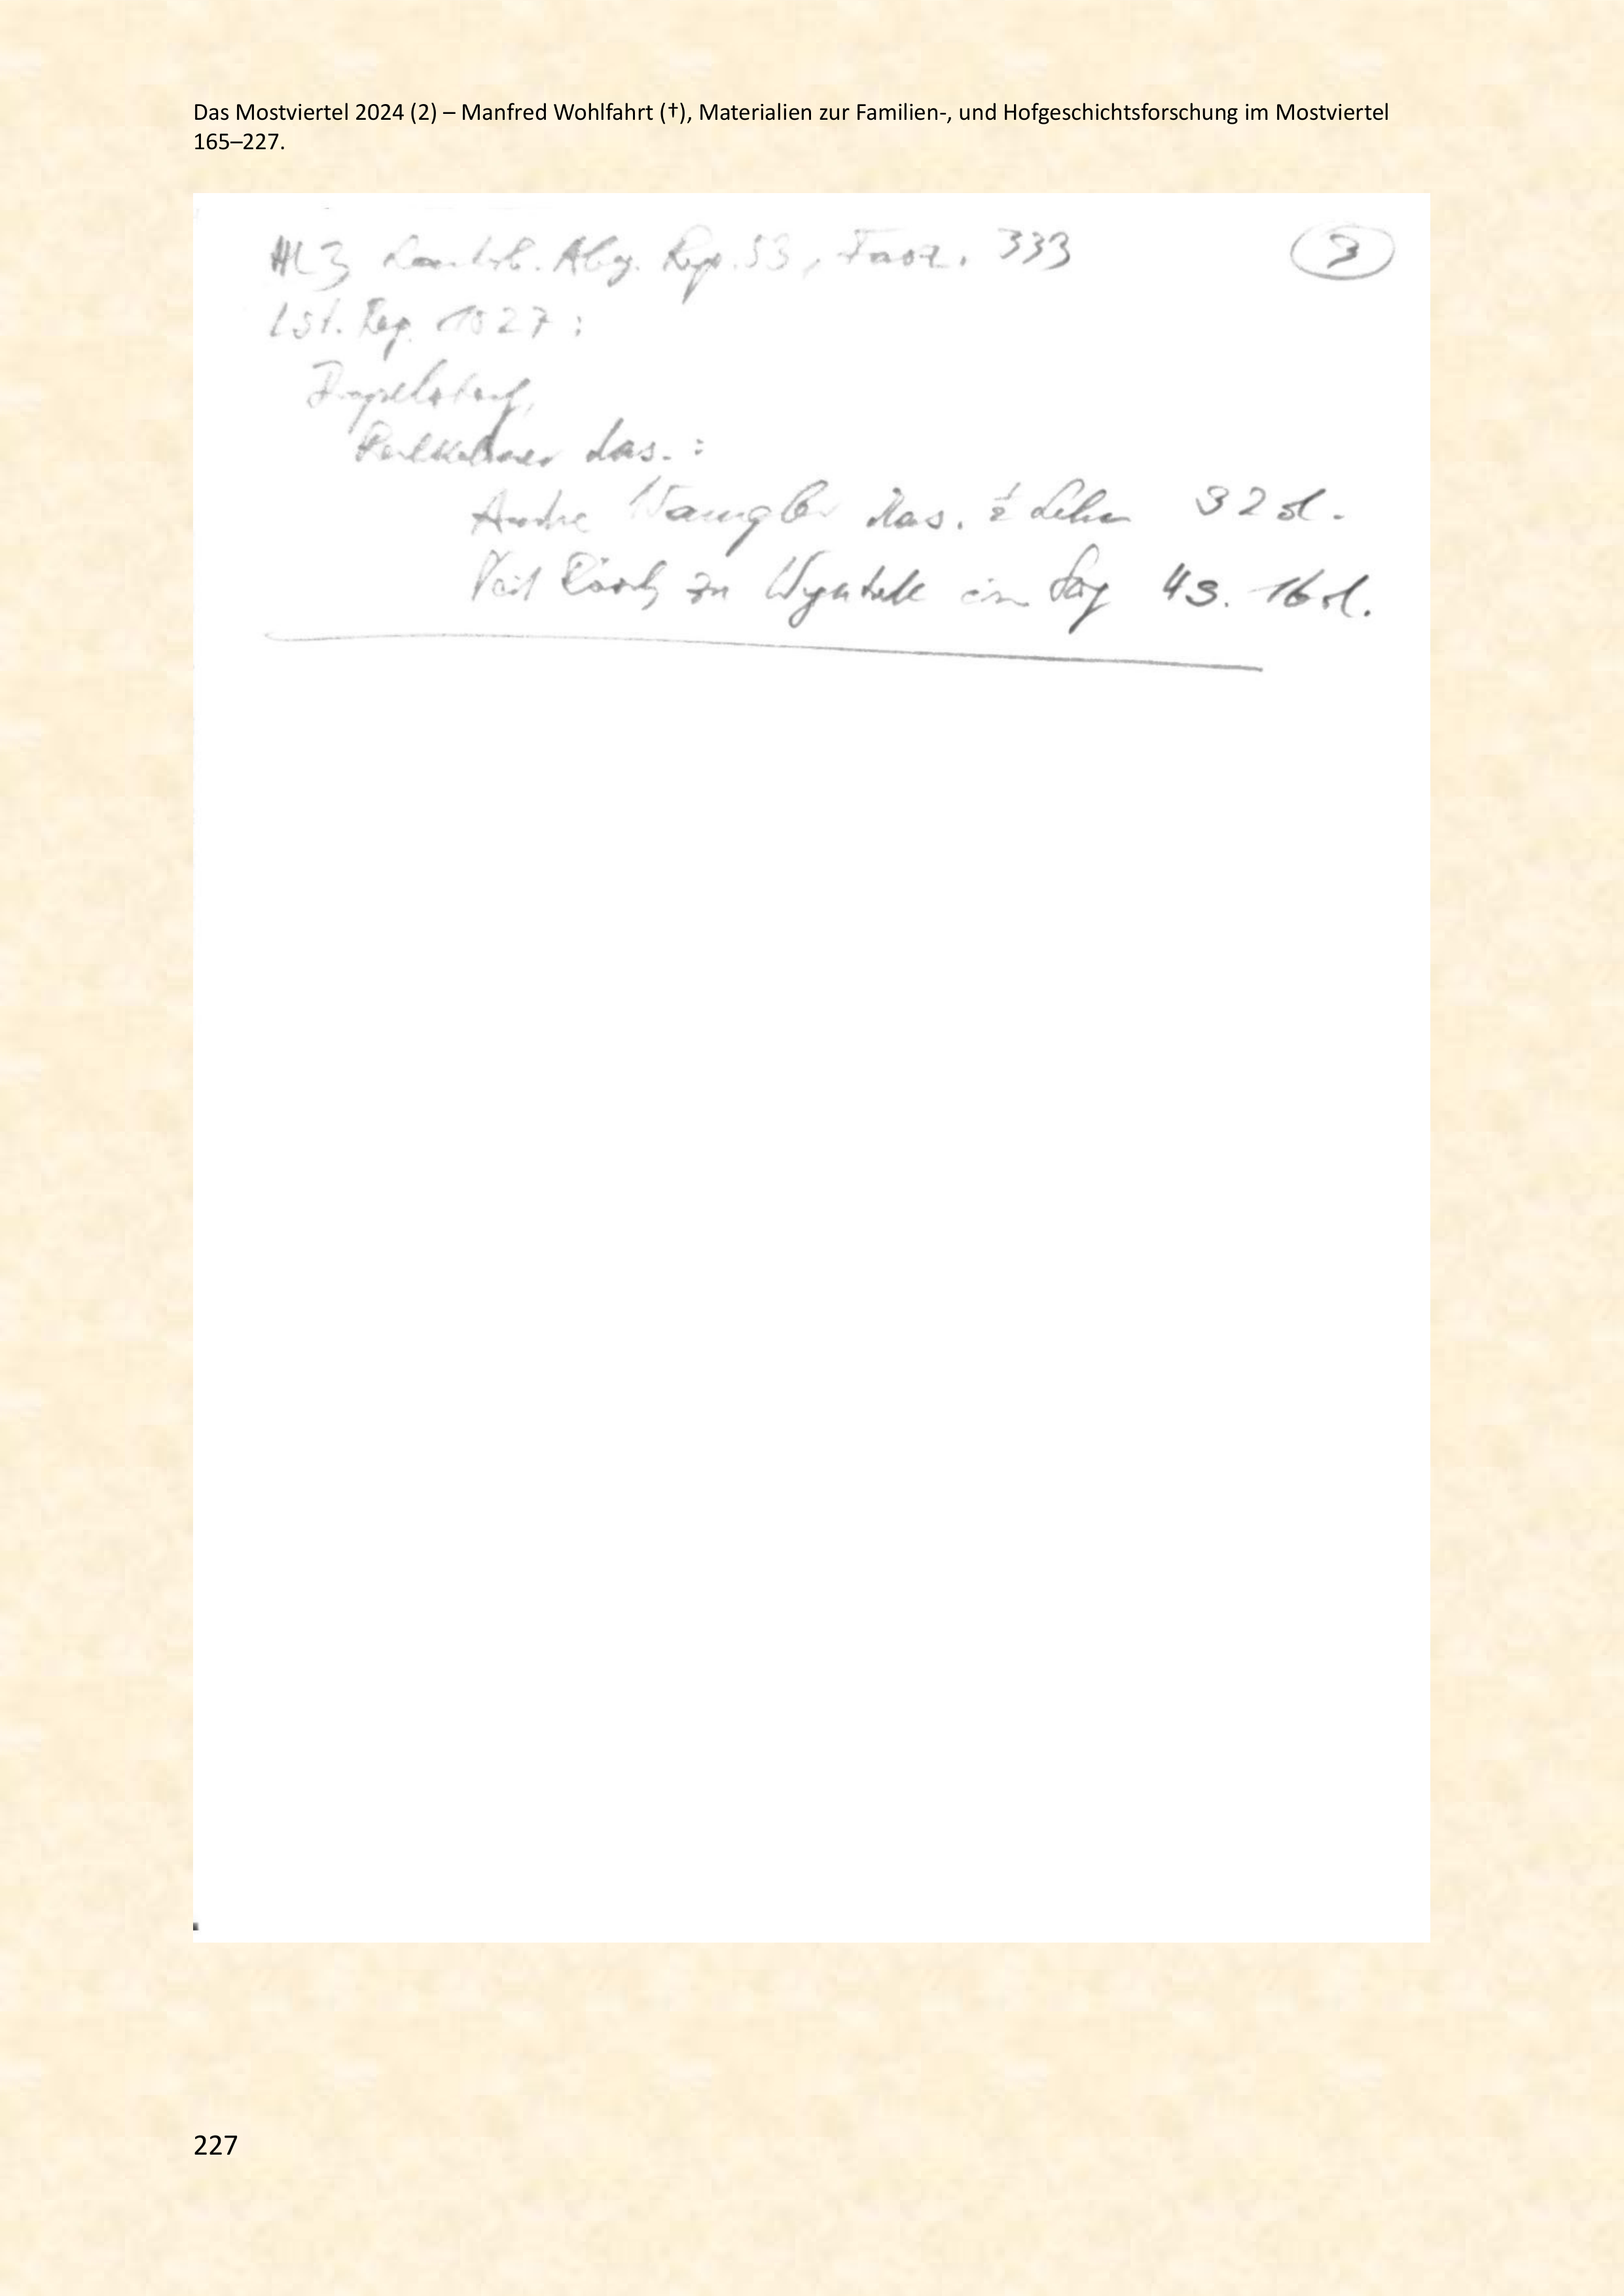 Das Mostviertel 2024 (2) – Manfred Wohlfahrt (†), Materialien zur Familien-, und Hofgeschichtsforschung im Mostviertel
165–227.
Abg. Rep. 53, Fasz. 333
3
Lst. Reg. 1527:
das.:
Andre Wamgler das. ½ Lehen 32 d.
Veit zu ein 4 s. 16 d.
227